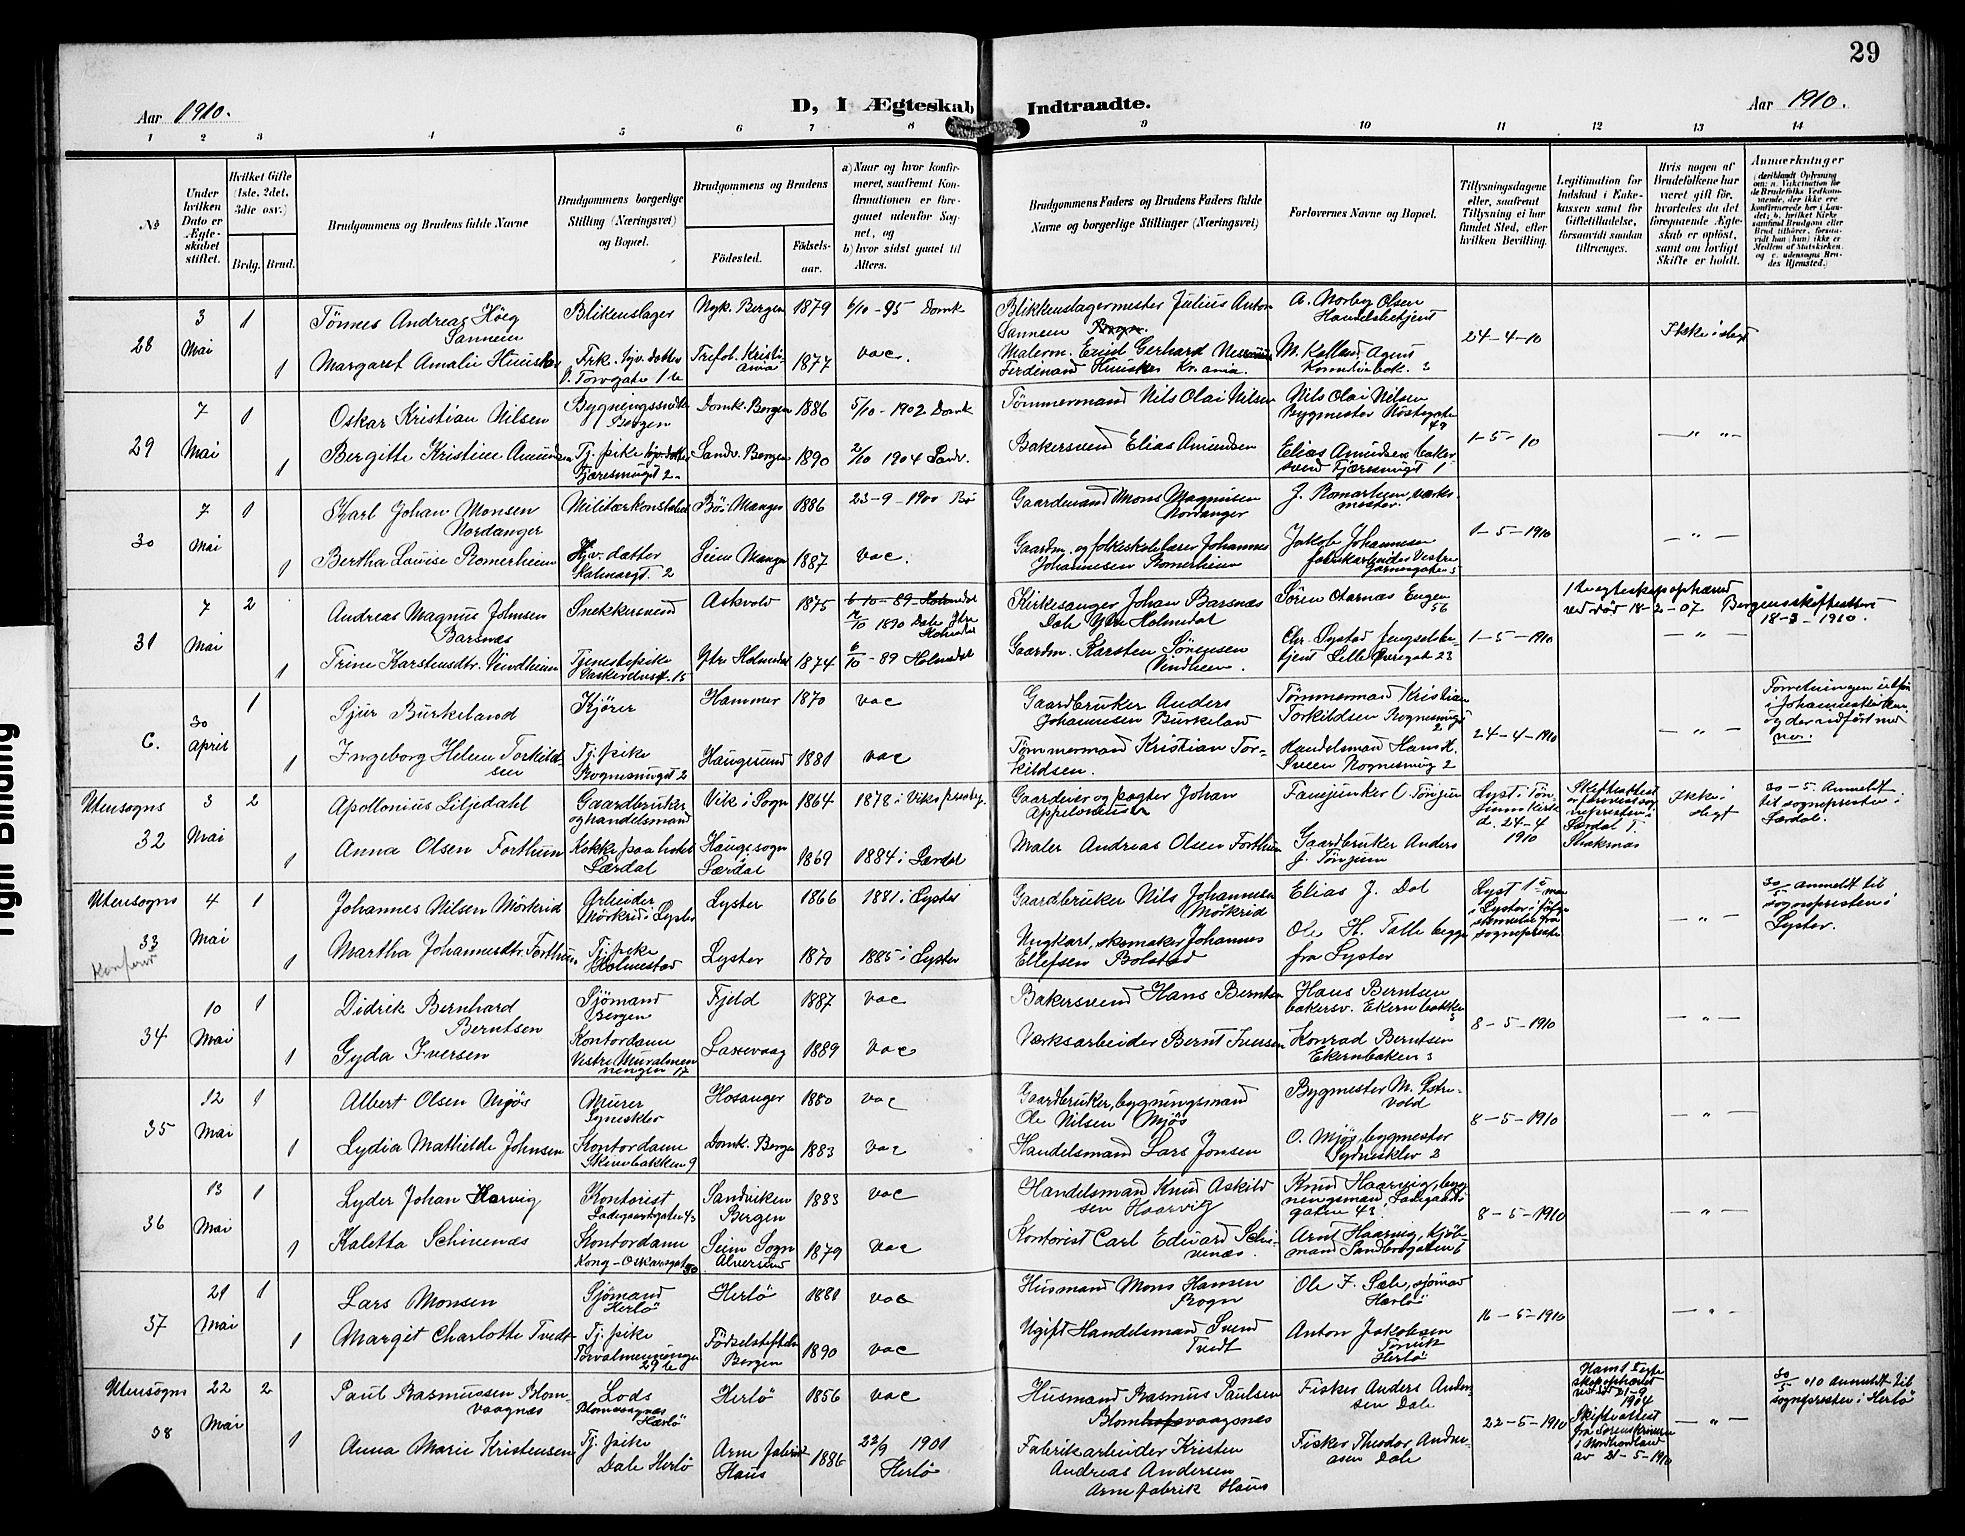 29
Aar 1910.
D, I Ægteskab Indtraadte.
Aar 1910.
1 2 3 4 5 6 7 8 9 10 11 12 13 14
No
Under hvilken Dato er Ægteskabet stiftet.
Hvilket Gifte (1ste, 2det, 3die osv.)
Brdg. Brud.
Brudgommens og Brudens fulde Navne
Brudgommens borgerlige Stilling (Næringsvei) og Bopæl.
Brudgommens og Brudens
Födested.
Födselsaar.
a) Naar og hvor konfirmeret, saafremt Konfirmationen er foregaaet udenfor Sognet, og
b) hvor sidst gaaet til Alters.
Brudgommens Faders og Brudens Faders fulde Navne og borgerlige Stillinger (Næringsvei)
Forlovernes Navne og Bopæl.
Tillysningsdagene eller, saafremt Tillysning ei har fundet Sted, efter hvilken Bevilling.
Legitimation for Indskud i Enkekassen samt for Giftetilladelse, forsaavidt saadan tiltrænges.
Hvis nogen af Brudefolkene har været gift för, hvorledes da det foregaaende Ægteskab er oplöst, samt om lovligt Skifte er holdt.
Anmærkninger
28
3 Mai
1
Tönnes Andreas Höeg Sannem
Blikenslager
Nyk. Bergen
1879
6/10-95 Domk
Blikkenslagermester Julius Anton Sannem Bergen.
A. Norby Olsen Handelsbetjent
24-4-10
Ikke i slegt
1
Margaret Amalie Huuskes
Frk. hjv. datter
Trefol. Kristiania
1877
vac.
29
7 Mai
1
Oskar Kristian Nilsen
Bergen
Domk. Bergen
1886
5/10-1902 Domk
Tömmermand Nils Olai Nilsen
Nils Olai Nilsen Bygmester Nöstegaten 49
1-5-10
1
Bergitte Kristine Amundsen
Tj. pike hjv. datter
Sandv. Bergen
1890
2/10 1904 Sandv.
Bakersvend Elias Amundsen
Elias Amundsen baker svend Tjæresmugt 1
30
7 Mai
1
Karl Johan Monsen Nordanger
Militærkonstabel
Bö i Manger
1886
23-9-1900 Bö
Gaardmand Mons Magnusen Nordanger
J. Romarheim, værksmester.
1-5-1910
1
Bertha Lovise Romerheim
Hjv. datter Kalmargt. 2
Seim Manger
1887
vac.
Gaardm. og folkeskolelærer Johannes Johannesen Romerheim
Jakob Johannesen fabrikarbeider Vestre
31
7 Mai
2
Andreas Magnus Johnsen Barsnes
Snekkersvend
Askvold
1875
6-10-89 Holmedal
2/10 1890 Dale Ytre Holmedal
Kirkesanger Johan Barsnæs Dale Ytre Holmedal
Sören Aarnæs Engen 56
1-5-1910
1ste egteskap ophævet ved död 18-2-07 Bergens skifteattest 18-3-1910.
1
Trine Karstensdtr. Vindheim
Tjenestepike
Ytre Holmedal
1874
6/10-89 Holmedal
Gaardm. Karsten Sörensen Vindheim.
Chr. Öystad fengselsbetjent Lille Övregat 23
6.
30 april
1
Sjur Burkeland
Kjörer
Hammer
1870
vac
Gaardbruker Anders Johannesen Burkeland
Tömmermand Kristian Torkildsen Rognesmug 2
24-4-1910
Forretningen utfört i Johanneskirken og der indfört ved
1
Ingeborg Helene Torkildsen
Tj. pike Rognesmuget 2
Haugesund
1881
vac
Tömmermand Kristian Torkildsen.
Handelsmand Hans K. Sveen Rognesmug 2
Utensogns
32
3 Mai
2
Apollonius Liljedahl
Gaardbruker og handelsmand
Vik i Sogn
1864
1878 i Viks prestegj.
Gaardeier og pagter Johan
Fansjunker O Tönjum
Lyst i Tönjums kirke d. 24-4 1910
Ikke i slegt
30-5. Anmeldt til sognepresten i Lærdal.
1
Anna Olsen Forthun
Kokke paa hotel Lærdal
Hauge sogn Lærdal
1869
1884 i Lærdal
Maler Andreas Olsen Forthun
Gaardbruker Anders J. Tönjum
Utensogns
33
4 Mai
1
Johannes Nilsen Mörkrid
Arbeider Mörkrid i Lyster
Lyster
1866
1881 i Lyster
Gaardbruker Nils Johannesen Mörkrid
Elias J. Dal
30/5 anmeldt til sognepresten i Lyster.
1
Martha Johannesdtr. Forthun
Tj. pike Holmestad
Lyster
1870
1885 i Lyster
Ungkarl, skomaker Johannes Ellefsen Bolstad
Ole H. Talle begge fra Lyster
34
10 Mai
1
Didrik Bernhard Berntsen
Sjömand Bergen
Fjeld
1887
vac
Bakersvend Hans Berntsen
Hans Berntsen bakersv. Ekernbakke 3
8-5-1910
1
Gyda Iversen
Kontordame Vestre Muralmenningen 17
Laxevaag
1889
vac
Værksarbeider Bernt Iversen
Konrad Berntsen Ekernbaken 3
35
12 Mai
1
Albert Olsen Mjös
Murer
Hosanger
1880
vac
Gaardbruker, bygningsmand Ole Nilsen Mjös
Bygmester M. Lstrevold
8-5-1910
1
Lydia Mathilde Johnsen
Kontordame Skivebakken 9
Domk. Bergen
1883
vac
Handelsmand Lars Jonsen
O. Mjös, bygmester Sydneskler 2
36
13 Mai
1
Lyder Johan Horvig
Kontorist Ladegaardsgaten 43
Sandviken Bergen
1883
vac
Handelsmand Knud Askildsen Haarvig
Knud Haarvig, bygningsmand, Ladegaardsgaten 43
8-5-1910
1
Kaletta Schivenæs
Kontordame Kong-Oskarsgat 50
Seim Sogn Alversund
1879
vac
Kontorist Carl Eduard Schivenæs.
Arnt Haarvig, kjöbmand Sandbrogaten 6
37
21 Mai
1
Lars Monsen
Sjömand Herlö
Herlö
1881
vac
Husmand Mons Hansen Rogn
Ole F. Sæle, sjömand Herlö
16-5-1910
1
Margit Charlotte Tvedt
Tj. pike Torvalmenningen 29 b
Födselsstiftelsen Bergen
1890
vac
Ugift Handelsmand Svend Tvedt
Anton Jakobsen Herlö
Utensogns
38
22 Mai
2
Paul Rasmussen Blomvaagnæs
Lods Blomvaagnæs Herlö
Herlö
1856
vac
Husmand Rasmus Paulsen Blomvaagsnæs
Fisker Anders Andersen Dale
22-5-1910
Hans 1. egteskap ophævet ved död 21-9 1904 Skifteattest fra Sorenskriveren i Nordhordland av 21-5-1910
30/5 010 anmeldt til sognepresten i Herlö
1
Anna Marie Kristensen
Tj. pike Dale Herlö
Arne fabrik Haus
1886
22/9 1901 Herlö
Fabrikarbeider Kristen Andreas Andersen Arne fabrik Haus
Fisker Theodor Andreasen Dale
Tight Binding